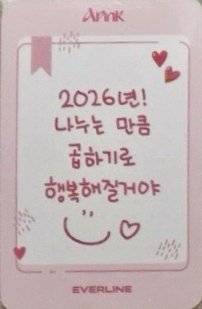 Apink
2026년!
나누는 만큼
곱하기로
행복해질거야
EVERLINE